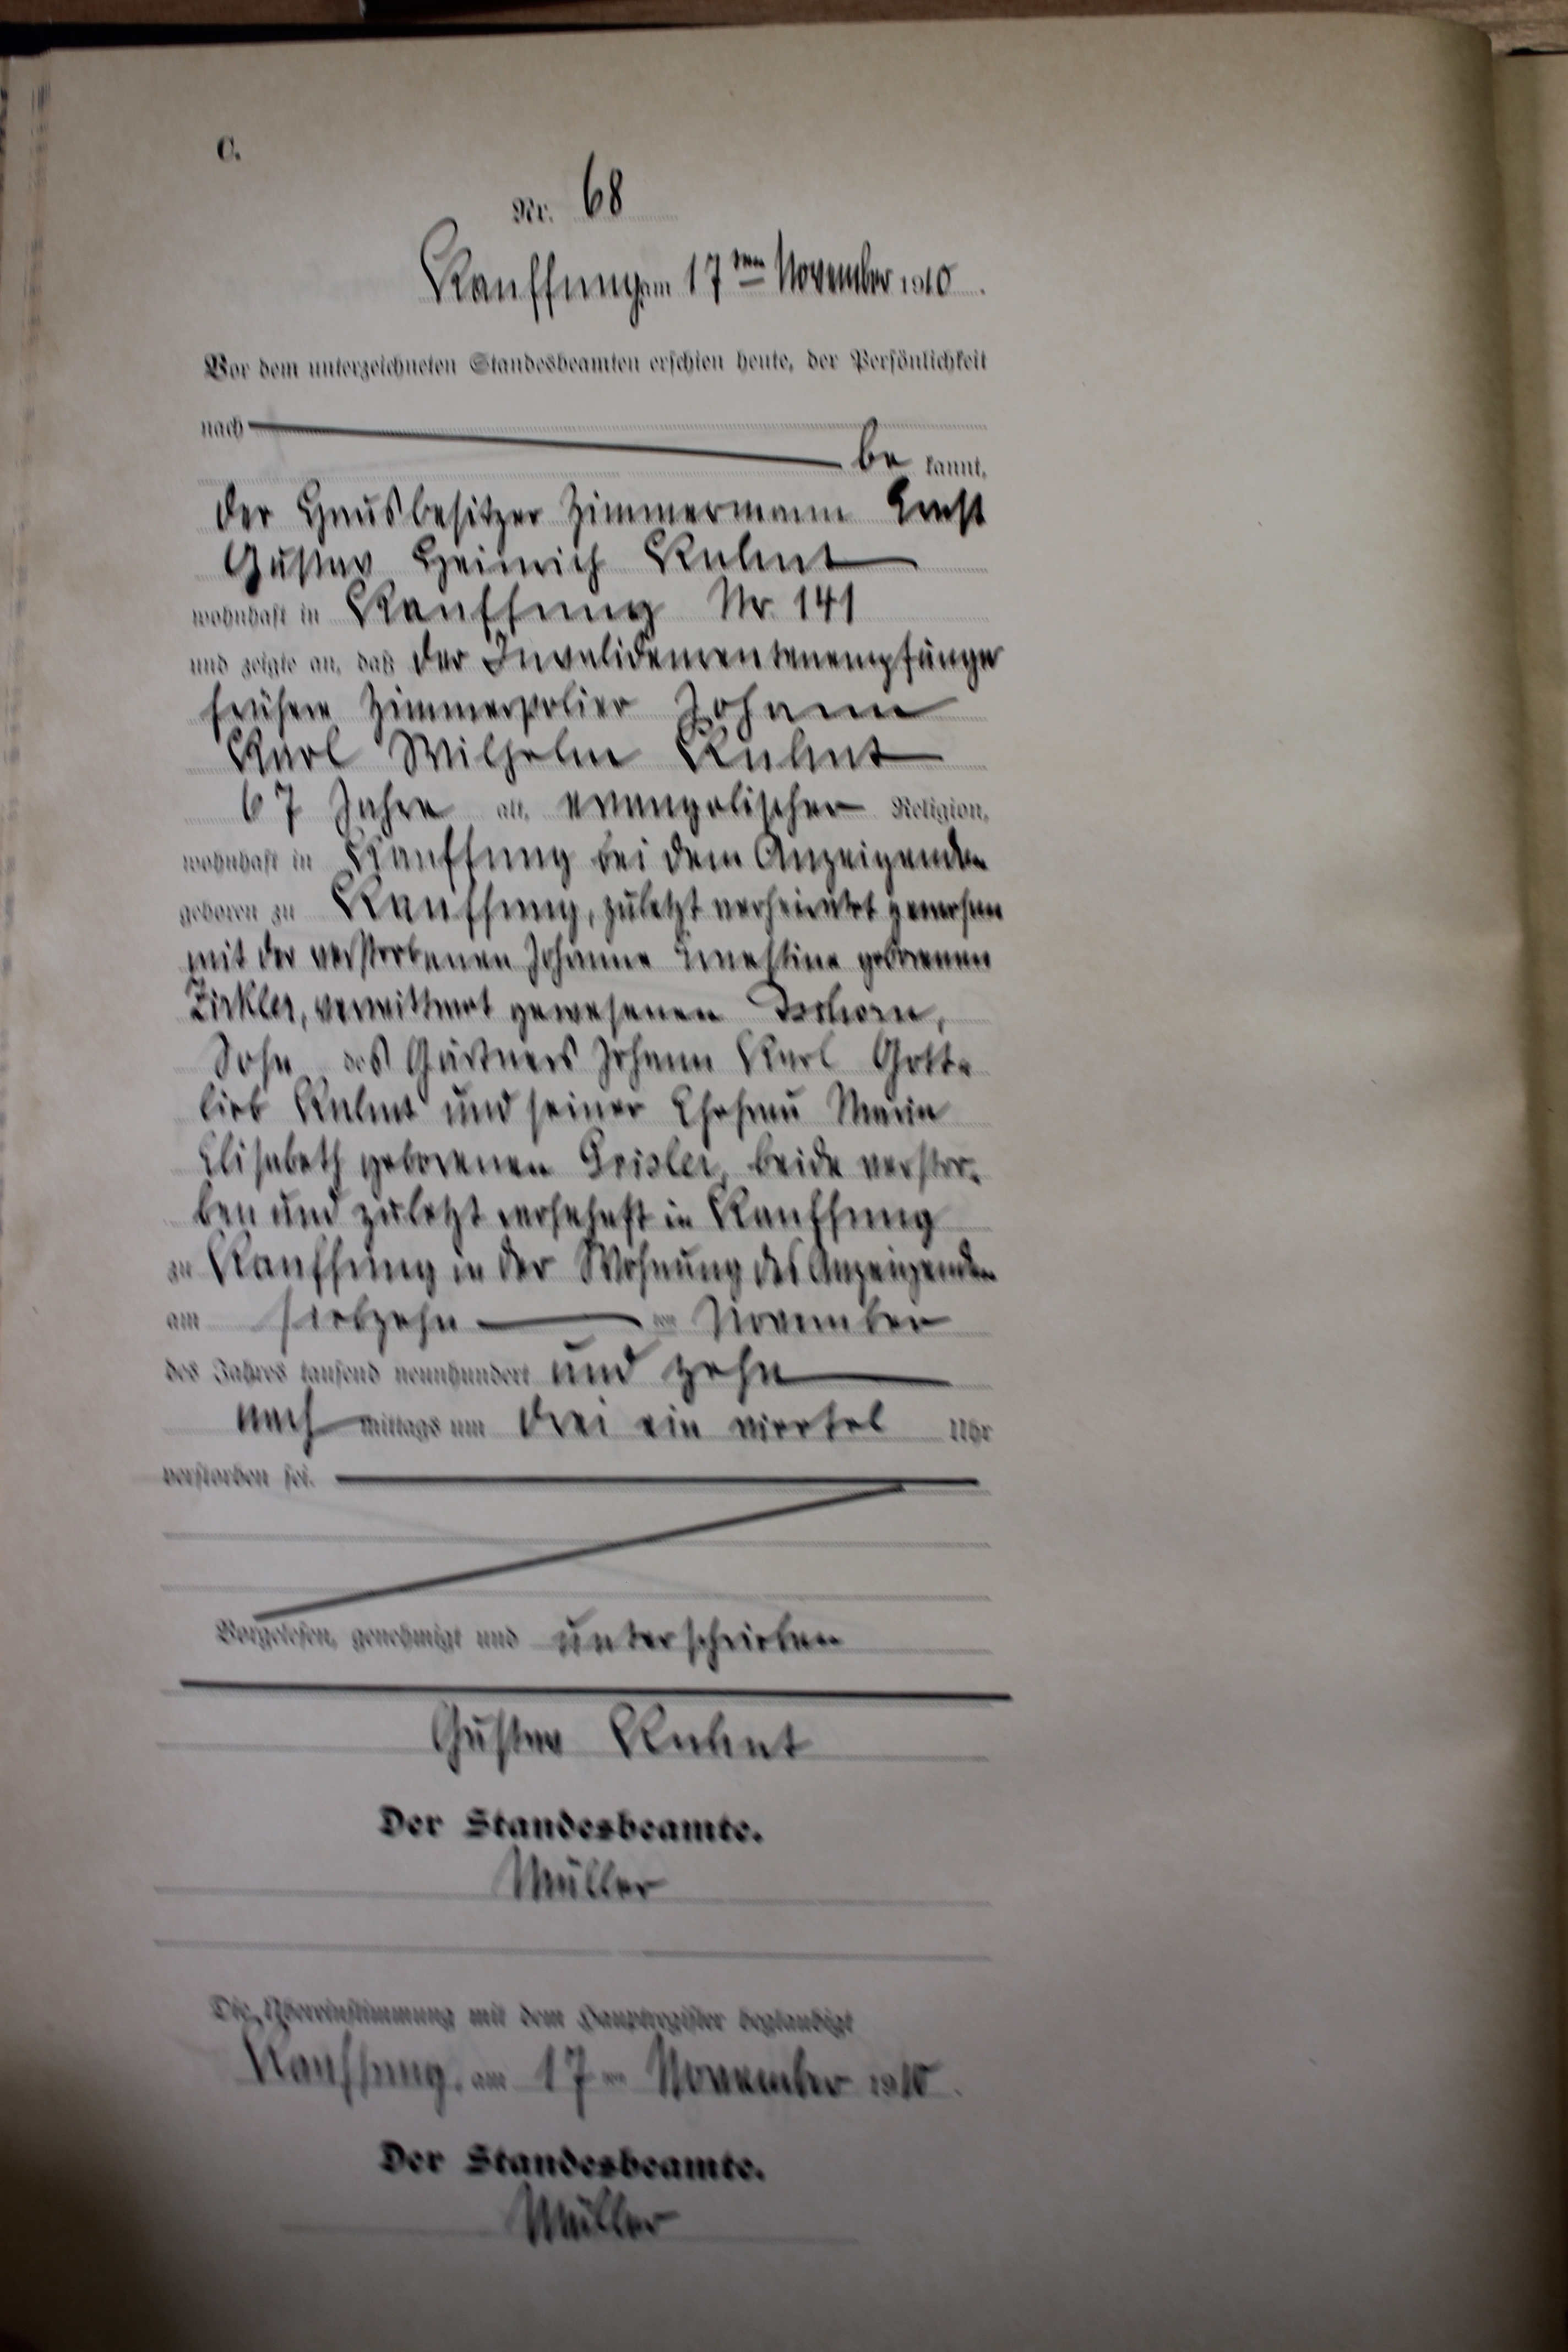 C.
Nr. 68
Kauffung am 17ten November 1910.
Vor dem unterzeichneten Standesbeamten erschien heute, der Persönlichkeit
nach
be kannt,
der Hausbesitzer Zimmermann Ernst
Gustav Heinrich Kuhnt
wohnhaft in Kauffung Nr. 141
und zeigte an, daß der Invalidenrentenempfänger
frühere Zimmerpolier Johann
Karl Wilhelm Kuhnt
67 Jahre alt, evangelischer Religion,
wohnhaft in Kauffung bei dem Anzeigenden
geboren zu Kauffung, zuletzt verheiratet gewesen
mit der verstorbenen Johanne Ernestine geborenen
Zirkler, verwittwet gewesenen Tschorn,
Sohn des Gärtners Johann Karl Gott-
lieb Kuhnt und seiner Ehefrau Maria
Elisabeth geborenen Geisler, beide verstor-
ben und zuletzt wohnhaft in Kauffung
zu Kauffung in der Wohnung des Anzeigenden
am siebzehn ten November
des Jahres tausend neunhundert und zehn
nach mittags um drei ein viertel Uhr
verstorben sei.
Vorgelesen, genehmigt und unterschrieben
Gustav Kuhnt
Der Standesbeamte.
Müller
Die Übereinstimmung mit dem Hauptregister beglaubigt
Kauffung, am 17 ten November 1910.
Der Standesbeamte.
Müller